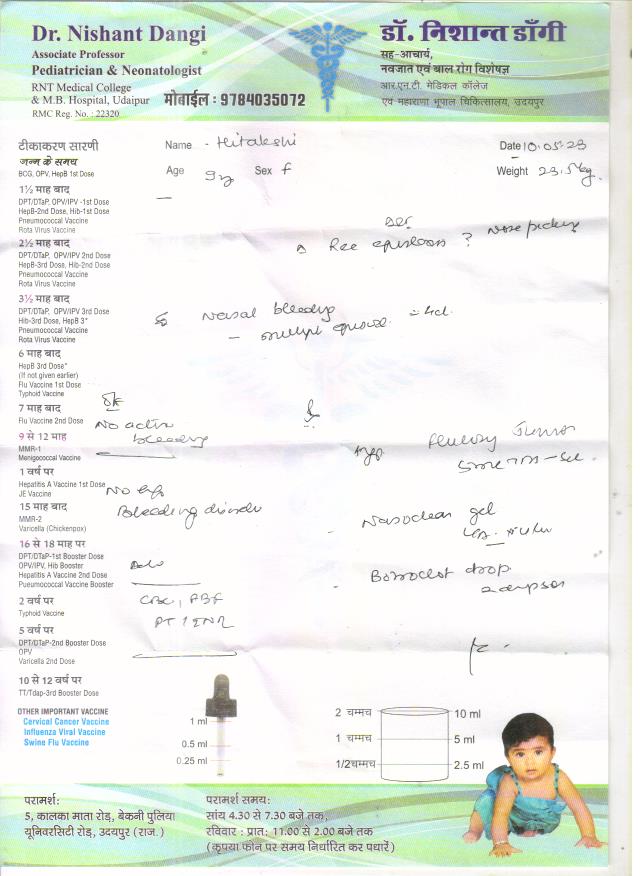 Dr. Nishant Dangi
Associate Professor
Pediatrician & Neonatologist
RNT Medical College
& M.B. Hospital, Udaipur
RMC Reg. No. : 22320
मोबाईल : 9784035072
डॉ. निशान्त डाँगी
सह-आचार्य,
नवजात एवं बाल रोग विशेषज्ञ
आर.एन.टी. मेडिकल कॉलेज
एवं महाराणा भूपाल चिकित्सालय, उदयपुर
Name - Hitakshi
Date 10.05.23
Age 9y Sex F
Weight 23.5kg
टीकाकरण सारणी
जन्म के समय
BCG, OPV, HepB 1st Dose
1½ माह बाद
DPT/DTaP, OPV/IPV -1st Dose
HepB-2nd Dose, Hib-1st Dose
Pneumococcal Vaccine
Rota Virus Vaccine
2½ माह बाद
DPT/DTaP, OPV/IPV 2nd Dose
HepB-3rd Dose, Hib-2nd Dose
Pneumococcal Vaccine
Rota Virus Vaccine
3½ माह बाद
DPT/DTaP, OPV/IPV 3rd Dose
Hib-3rd Dose, HepB 3*
Pneumococcal Vaccine
Rota Virus Vaccine
6 माह बाद
HepB 3rd Dose*
(If not given earlier)
Flu Vaccine 1st Dose
Typhoid Vaccine
7 माह बाद
Flu Vaccine 2nd Dose
9 से 12 माह
MMR-1
Menigococcal Vaccine
1 वर्ष पर
Hepatitis A Vaccine 1st Dose
JE Vaccine
15 माह बाद
MMR-2
Varicella (Chickenpox)
16 से 18 माह पर
DPT/DTaP-1st Booster Dose
OPV/IPV, Hib Booster
Hepatitis A Vaccine 2nd Dose
Pueumococcal Vaccine Booster
2 वर्ष पर
Typhoid Vaccine
5 वर्ष पर
DPT/DTaP-2nd Booster Dose
OPV
Varicella 2nd Dose
10 से 12 वर्ष पर
TT/Tdap-3rd Booster Dose
OTHER IMPORTANT VACCINE
Cervical Cancer Vaccine
Influenza Viral Vaccine
Swine Flu Vaccine
? Nose picking
Nasal bleeding
No active
bleeding
Bleeding disorder
CBC, PBF
PT INR
Nasoclear gel
drop
1 ml
0.5 ml
0.25 ml
2 चम्मच 10 ml
1 चम्मच 5 ml
1/2चम्मच 2.5 ml
परामर्श:
5, कालका माता रोड़, बेकनी पुलिया
यूनिवरसिटी रोड़, उदयपुर (राज.)
परामर्श समय:
सांय 4.30 से 7.30 बजे तक,
रविवार : प्रात: 11.00 से 2.00 बजे तक
(कृपया फोन पर समय निर्धारित कर पधारें)